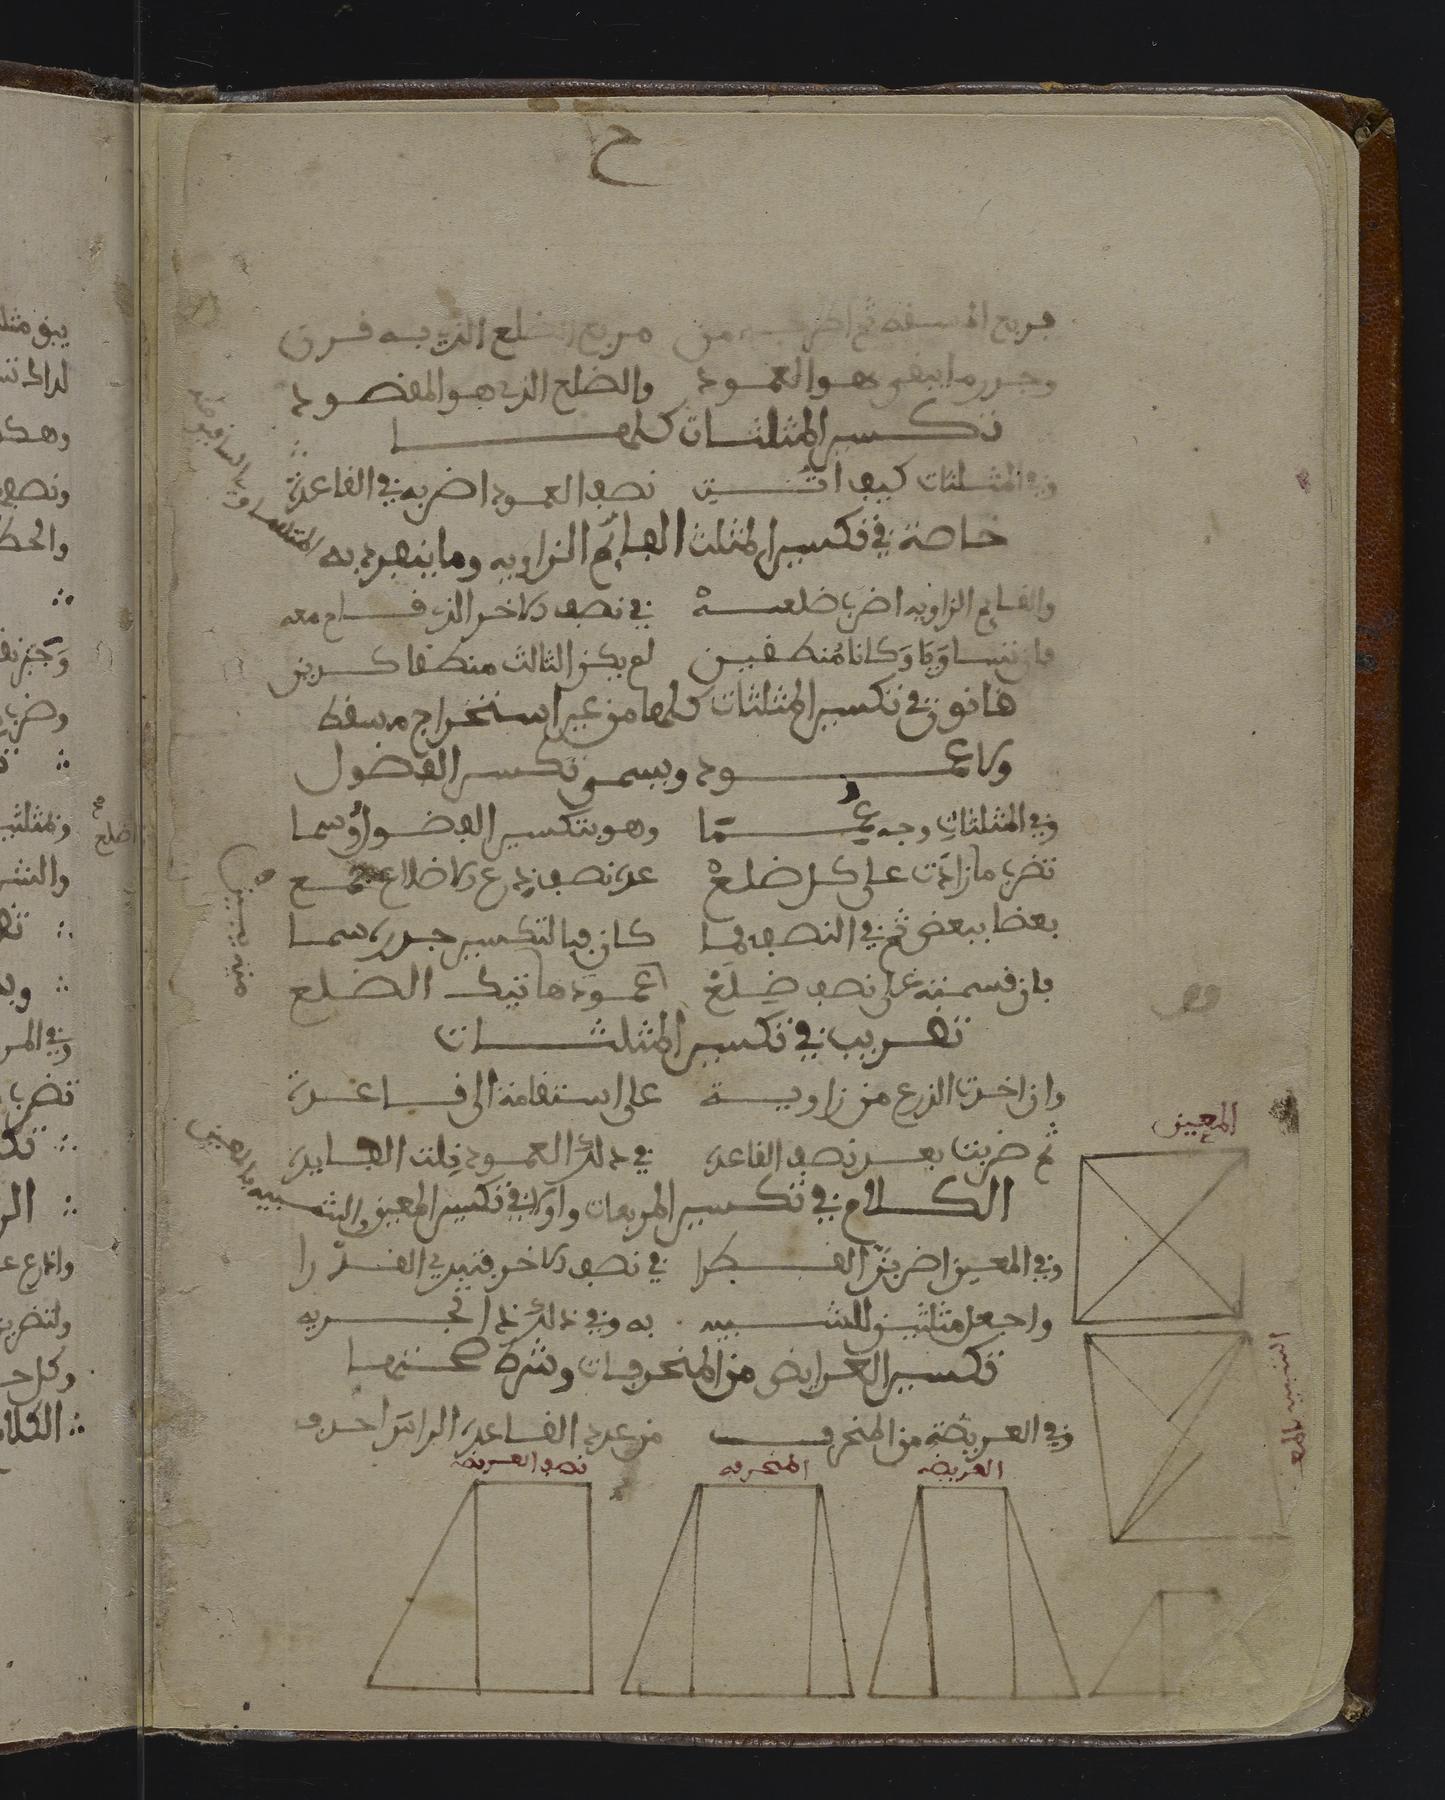 ح
فربع المسقط ثم اضربه من مربع الضلع الذي به قرن
وجذر ما يبقى هو العمود والضلع الذي هو المقصود
تكسير المثلثات كلها
وفي المثلثات كيف اتت نصف العمود اضربه في القاعدة
خاصة في تكسير المثلث القائم الزاويه وما ينفرد به
والقايم الزاويه اضرب ضلعه في نصف الاخر الذي قام معه
فان تساويا وكانا منطقين لم يكن الثالث منطقا
قانون في تكسير المثلثات كلها من غير استخراج مسقط
ولا عمود ويسمى تكسير الفضول
وفي المثلثات وجه عما وهو بتكسير الفضول وسما
تضرب ما زادت على كل ضلع عدة نصف ذرع الاضلاع جمع
بعضا ببعض ثم في النصف فما كان فبالتكسير جذره سما
فان قسمته على نصف ضلع عمودها تيك الضلع
تقريب في تكسير المثلثات
وان اخذت الذرع من زاوية على استقامة الى قاعدة
ثم ضربت بعد نصف القاعدة في ذلك العمود نلت الفايدة
الكلام في تكسير المربعات واولا في تكسير المعين والشبيه بالمعين
وفي المعين اضربن القطرا في نصف الاخر فتبدي القدرا
واجعل مثلثين للشبيه به وفي ذلك ذا تجريه
تكسير العرايض من المنحرفات وشرط صحتها
وفي العريضة من المنحرف من عدد القاعدة الراس احذف
المعين
الشبيه بالمعين
العريضة
المنحرفه
نصف العريضة